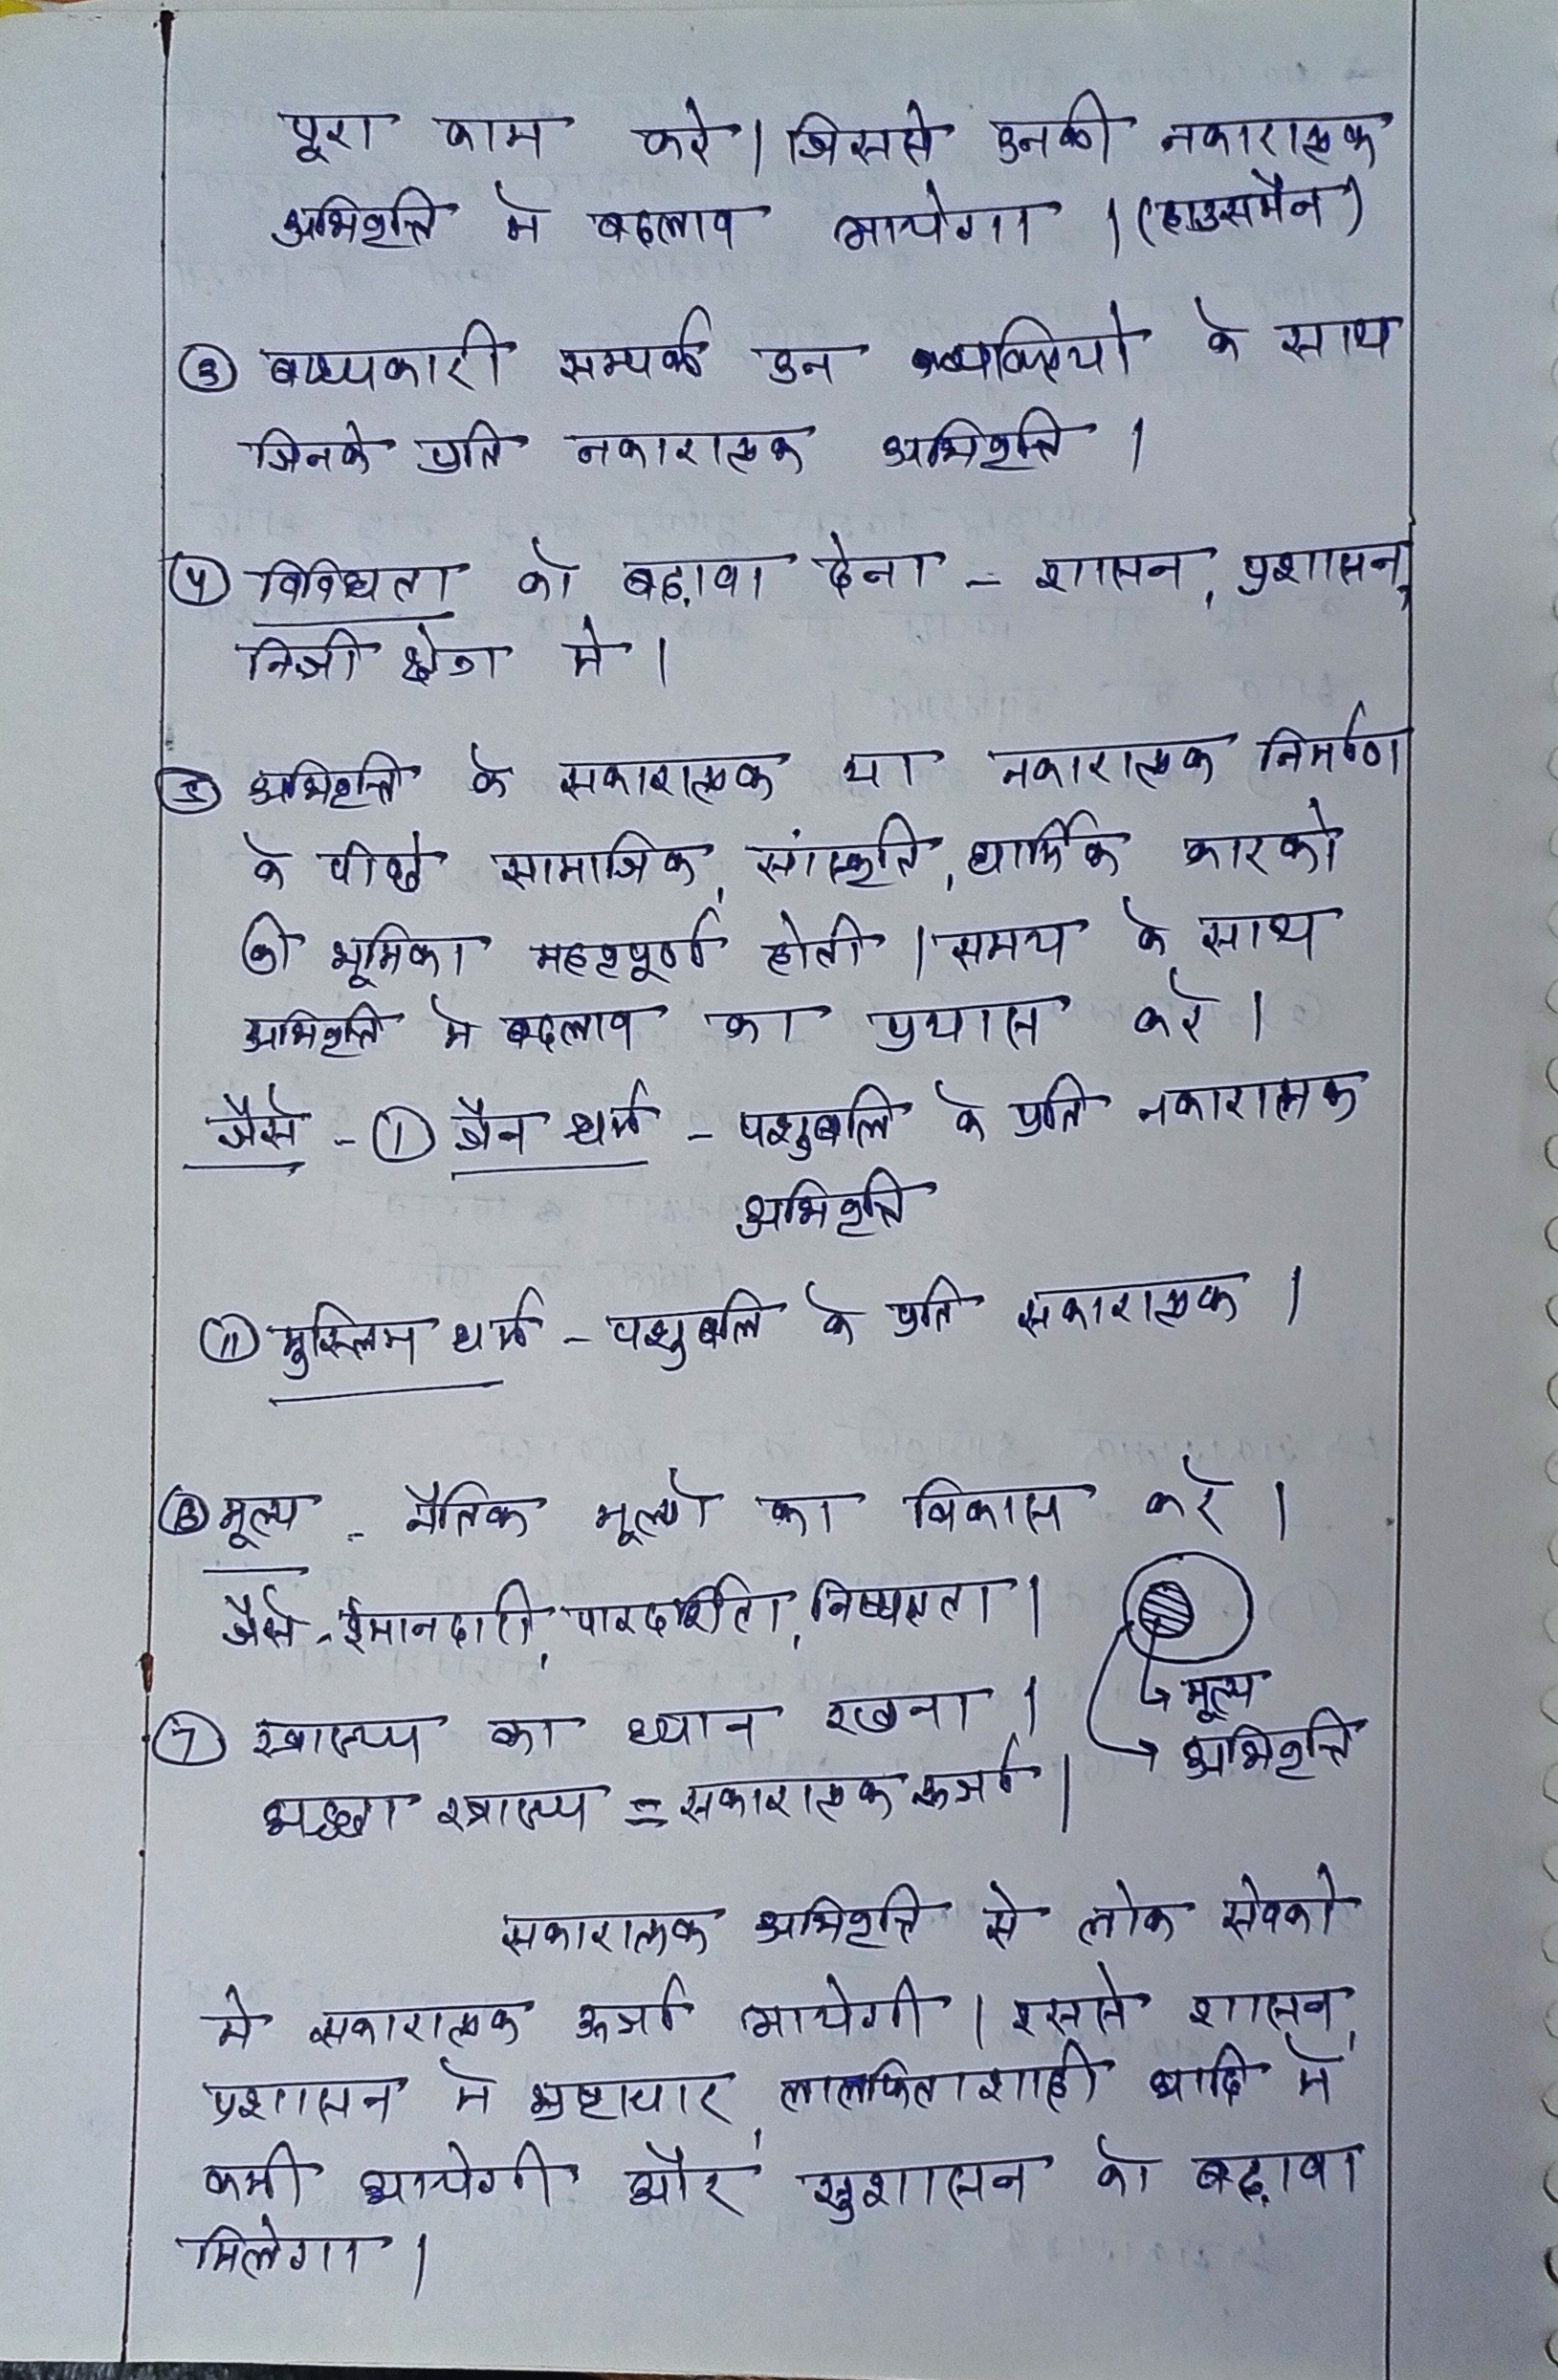 पूरा काम करे। जिससे उनकी नकारात्मक
अभिवृत्ति मे बदलाव आयेगा । (हाउसमैन)
③ बाध्यकारी सम्पर्क उन व्यक्तियो के साथ
जिनके प्रति नकारात्मक अभिवृत्ति ।
④ विविधता को बढ़ावा देना - शासन, प्रशासन,
निजी क्षेत्र मे ।
⑤ अभिवृत्ति के सकारात्मक या नकारात्मक निर्माण
के पीछे सामाजिक, सांस्कृति, धार्मिक कारको
की भूमिका महत्वपूर्ण होती । समय के साथ
अभिवृत्ति मे बदलाव का प्रयास करे ।
जैसे - ① जैन धर्म - पशुबलि के प्रति नकारात्मक
अभिवृत्ति
⑪ मुस्लिम धर्म - पशुबलि के प्रति सकारात्मक ।
⑥ मूल्य - नैतिक मूल्यो का विकास करे ।
जैसे - ईमानदारी, पारदर्शिता, निष्पक्षता ।
मूल्य
अभिवृत्ति
⑦ स्वास्थ्य का ध्यान रखना ।
अच्छा स्वास्थ्य = सकारात्मक ऊर्जा ।
सकारात्मक अभिवृत्ति से लोक सेवको
मे सकारात्मक ऊर्जा आयेगी । इससे शासन,
प्रशासन मे भ्रष्टाचार, लालफिताशाही आदि मे
कमी आयेगी और सुशासन को बढ़ावा
मिलेगा ।